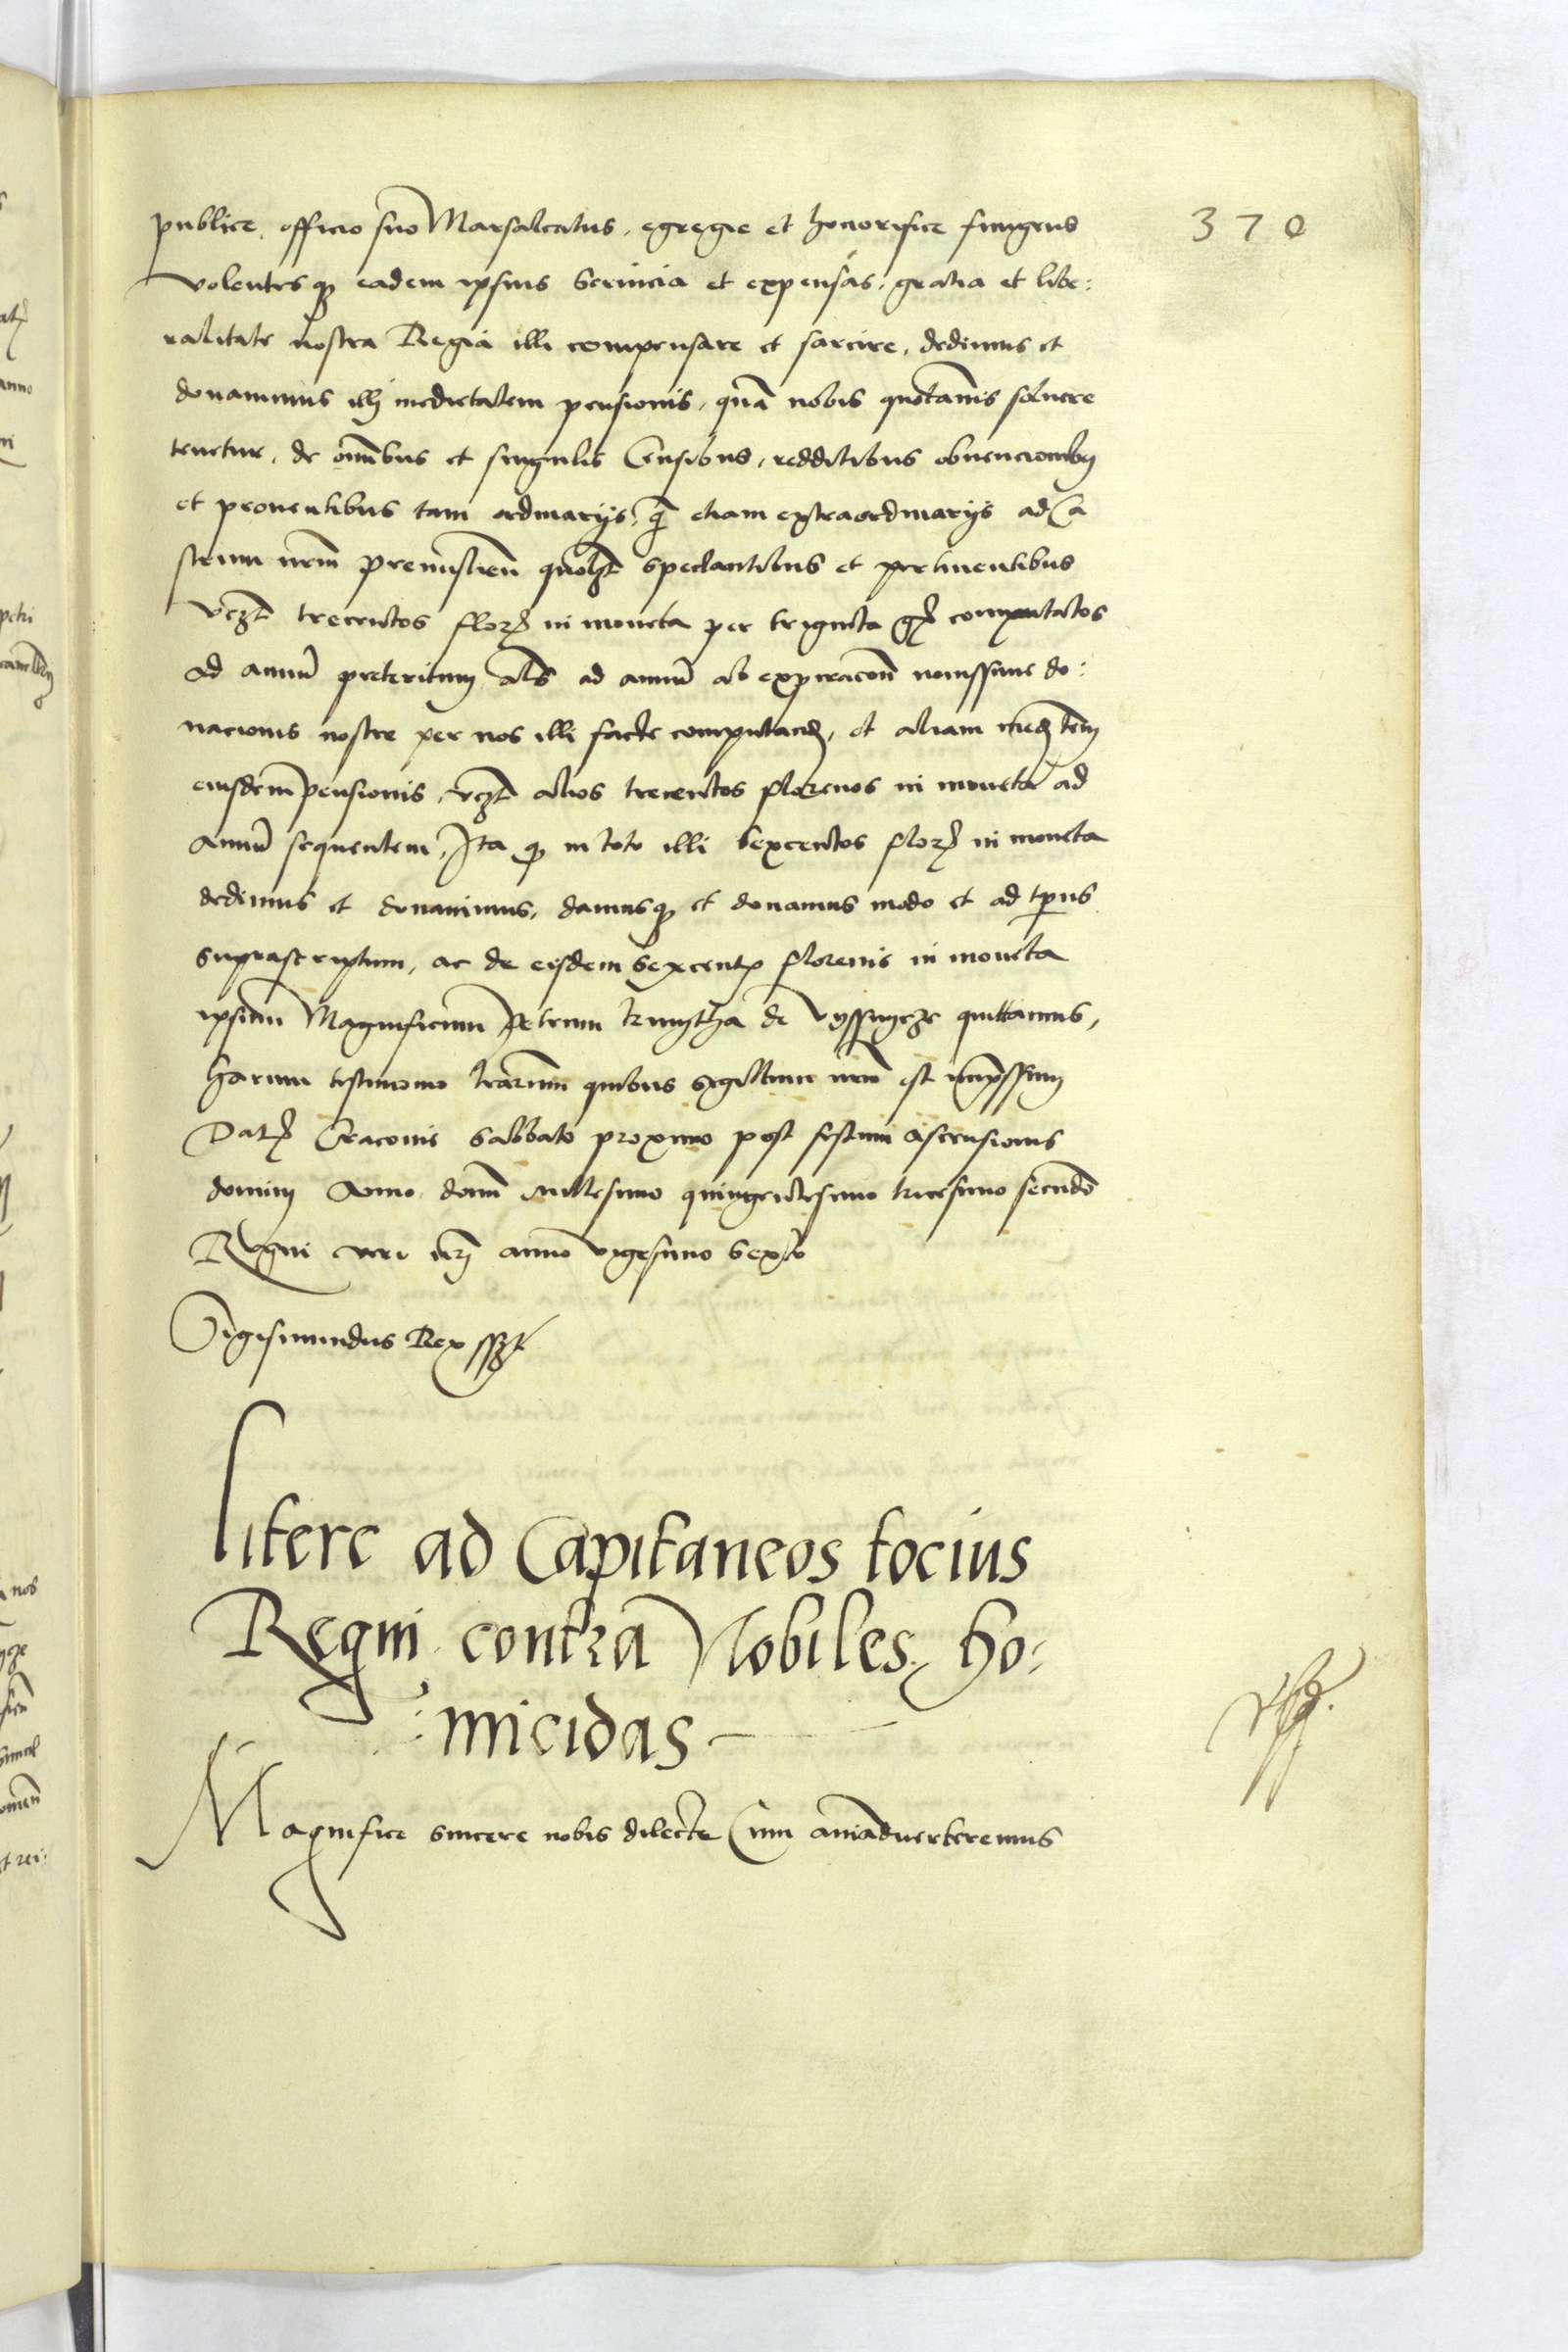 370
publice, officio suo Marsalcatus, egregie et honorifice fungens
volentes q3 eadem ipsius servicia et expensas, gratia et libe:
ralitate nostra Regia illi compensare et sarcire, dedimus et
donavimus illi medietatem pensionis, quā nobis quotānis solvere
tenetur, de omībus et singulis Censibus, redditibus obvencionibus
et proventibus tam ordinarijs, q̄ etiam extraordinarijs ad Ca
strum nrm̄ premislien̄ quolz̄t spectantibus et pertinentibus
Vcz̄t trecentos flor̄ in moneta per triginta gr̄ computatos
ad annū preteritum als ad annū ab expiracōn̄ novissime do:
nacionis nostre per nos illi facte computand̄, et aliam med̄tem̄
eiusdem pensionis, vcz̄t alios trecentos florenos in moneta ad
Annū sequentem, Ita q3 in toto illi sexcentos flor̄ in moneta
dedimus et donavimus, damusq3 et donamus modo et ad tp̄us
suprascriptum, ac de eisdem sexcent̄ florenis in moneta
ipsum Magnificum Petrum kmytha de Vyssnycze quittamus,
harum testimonio lr̄arum quibus sigillum nrm̄ est imp̄ssum
Dat̄ Cracovie sabbato proximo post festum ascensionis
domini Anno domī millesimo quingentesimo tricesimo secūdo
Regni vero nr̄i anno vigesimo sexto
Sigismundus Rex sszt
Litere ad Capitaneos tocius
Regni contra Nobiles ho:
:micidas
Magnifice sincere nobis dilecte Cum aniadverteremus